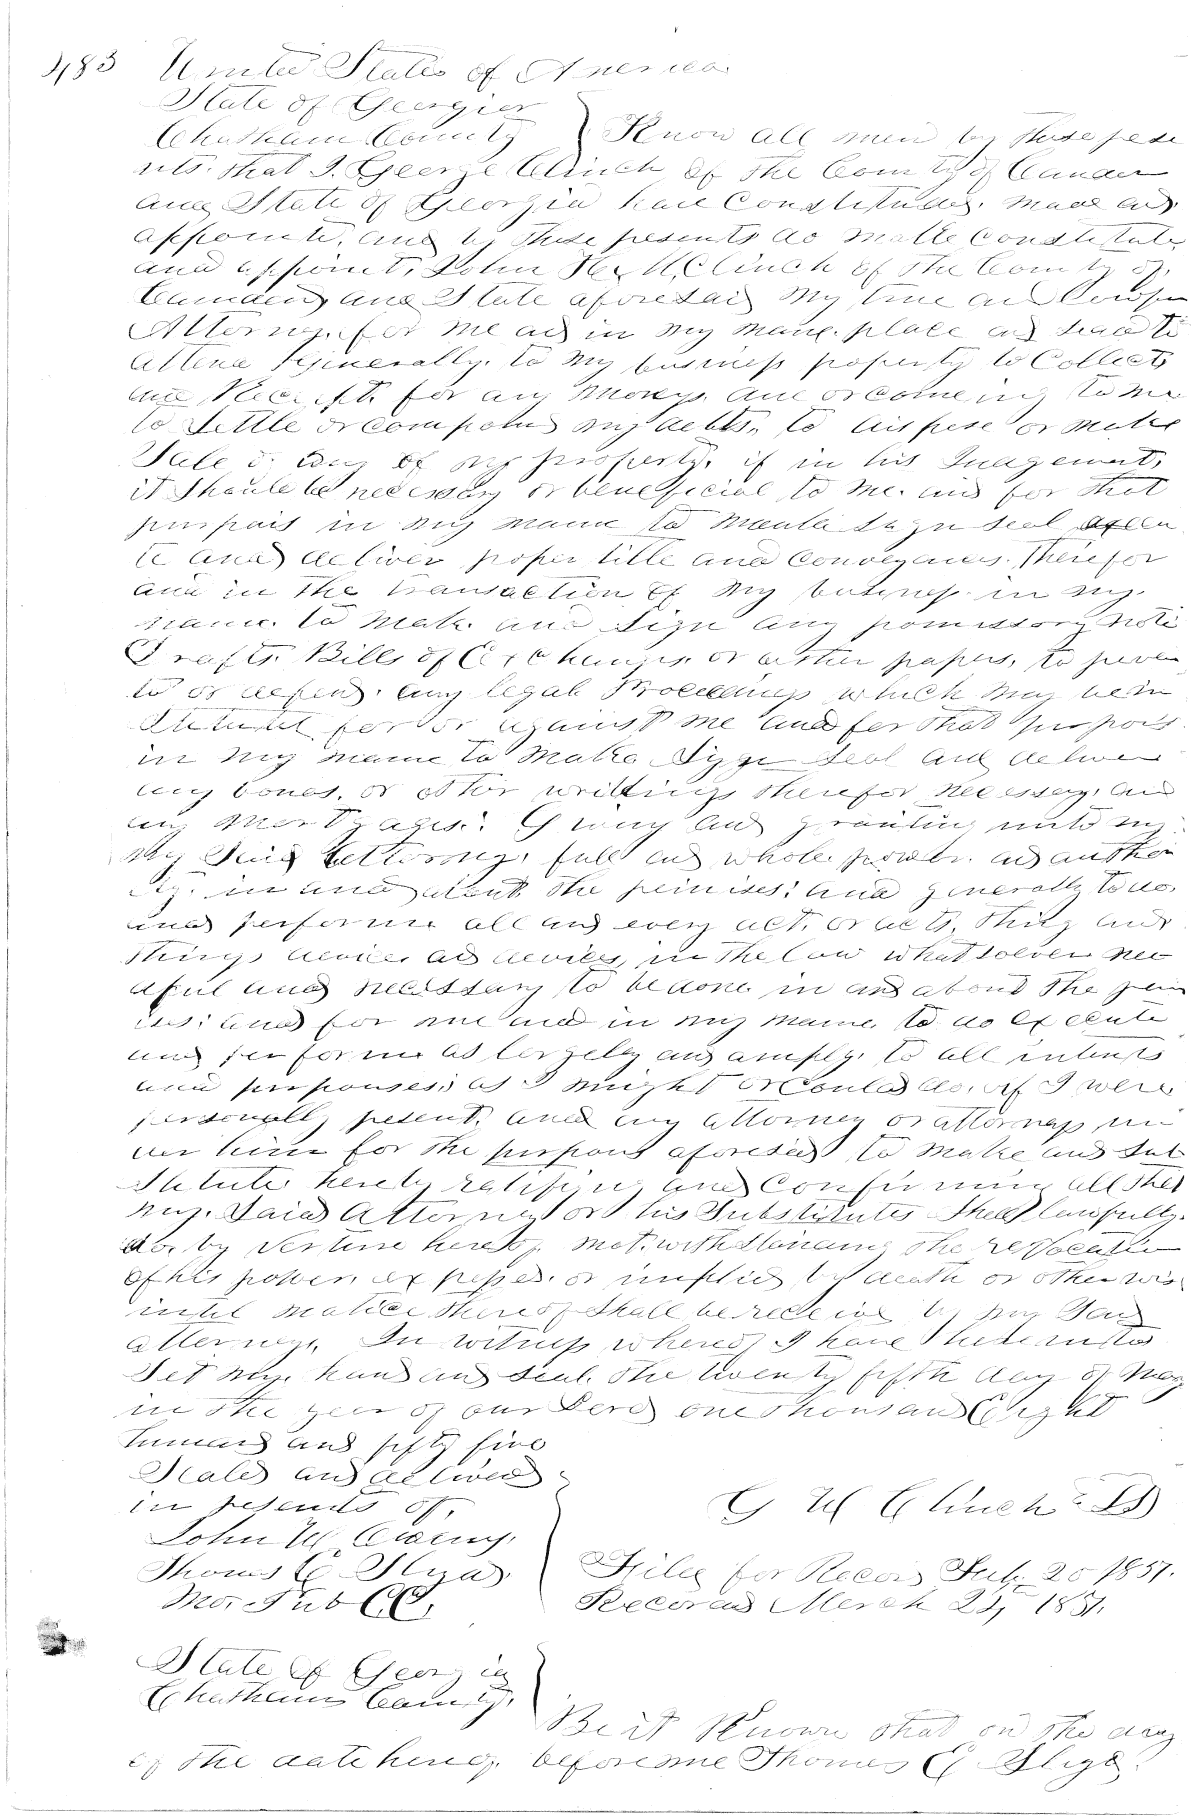 483
United States of America
State of Georgia
Chatham County } Know all men by these prese
nts. that I. George Clinch of the County of Camden
and State of Georgia have Constituted. Made and
appointe, and by these presents do make Constitute
and appoint, John H. M. Clinch of the County of,
Camden, and State aforesaid My, true and lawful
Attorney, for me and in my name. place and stead to
attend Generally. to My business property to Collect
and Receipt. for any Moneys due or comeing to me
to Settle or compound my debts, to dispose or make
Sale of any of my property, if in his Judgement,
it should be necessary or beneficial to Me. and for that
purpois in my name to make sign seal execu
te and deliver proper title and conveyances. Therefor
and in the transaction of My business in my.
name. to make and Sign any promissory note
Drafts. Bills of Exchanges. or other papers, to
to or defend. any legal Proceedings which may be in
stituted for or against me and for that purpois
in my name to make Sign Seal and deliver
any bonds. or other writtings therefor necessary, and
any Mortgages. Giving and granting unto my
My Said Attorney, full and whole power. and author
ity. in and about the premises: and generally to do.
and performe all and every act. or acts, thing and
things device and devices, in the Law whatsoever nee
dful and necessary to be done in and about the prem
ises: and for me and in my name, to do execute
and performe as largely and amply, to all intents
and purpouses; as I might or could do, if I were
personally present, and any attorney or attorneys un
der him for the purpous aforesaid to make and sub
stitute hereby ratifying and Confirming all that
my. Said Attorney or his Substitutes Shall lawfully.
do, by Vertue hereof. notwithstanding the revocation
of his power expressed. or implied by death or otherwis
until notice thereof shall be receive by my Said
attorney. In witness whereof I have hereunto
Set my. hand and seal. the twenty fifth day of May
in the year of our Lord one thousand Eight
hunred and fifty five
Sealed and delived
in presents of,
G W Clinch LS
John W.
Thomas C.
No. Pub C C,
Filed for Record Feb. 20 1857.
Recorded March 25, 1857.
State of Georgia
Chatham County,
Be it Known that on the day
of the date hereof. before me Thomas C.